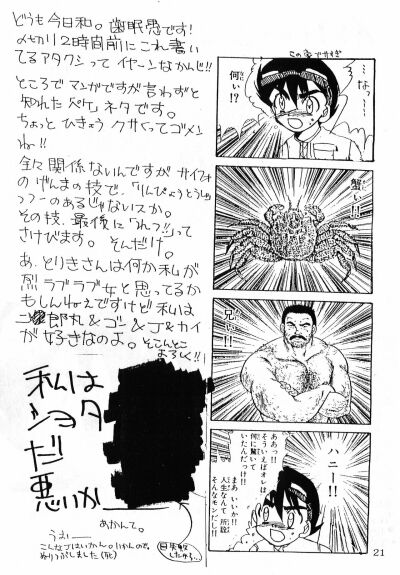 どうも今日和。歯眠愚です!
〆切り2時間前にこれ書い
てるアタクシって イヤーンなかんじ!!
ところで マンガですが言わずと
知れた ペケ ネタです。
ちょっと ひきょう クサくってゴメン
ね!!
全々関係ないんですが サイフォ
のげんまの技で、「りんぴょうとうしゃ
つつーのあるじゃないスか。
その技、最後に「れつ!!」って
さけびます。そんだけ。
あ、とりきさんは何か私が
烈ラブラブ女と思ってるか
もしんねぇですけど 私は
郎丸&ゴン&J&カイ
が好きなのよ。そこんとこ
よろしく!!
私は
ショタ
だ
悪いか
あかんて。
うえー
こんなラブはいかん。いかんので、
ぬりつぶしました(死)
失敗
したから…
…なっ…
何ィ!?
なに
蟹ィ!!
かに
兄ィ!!
あに
ハニー!!
ああっ!!
そういえばオレは
何に驚いて
いたんだっけ!!
まあ いいか!!
人生なんて 所詮
そんなモンだし!!
21